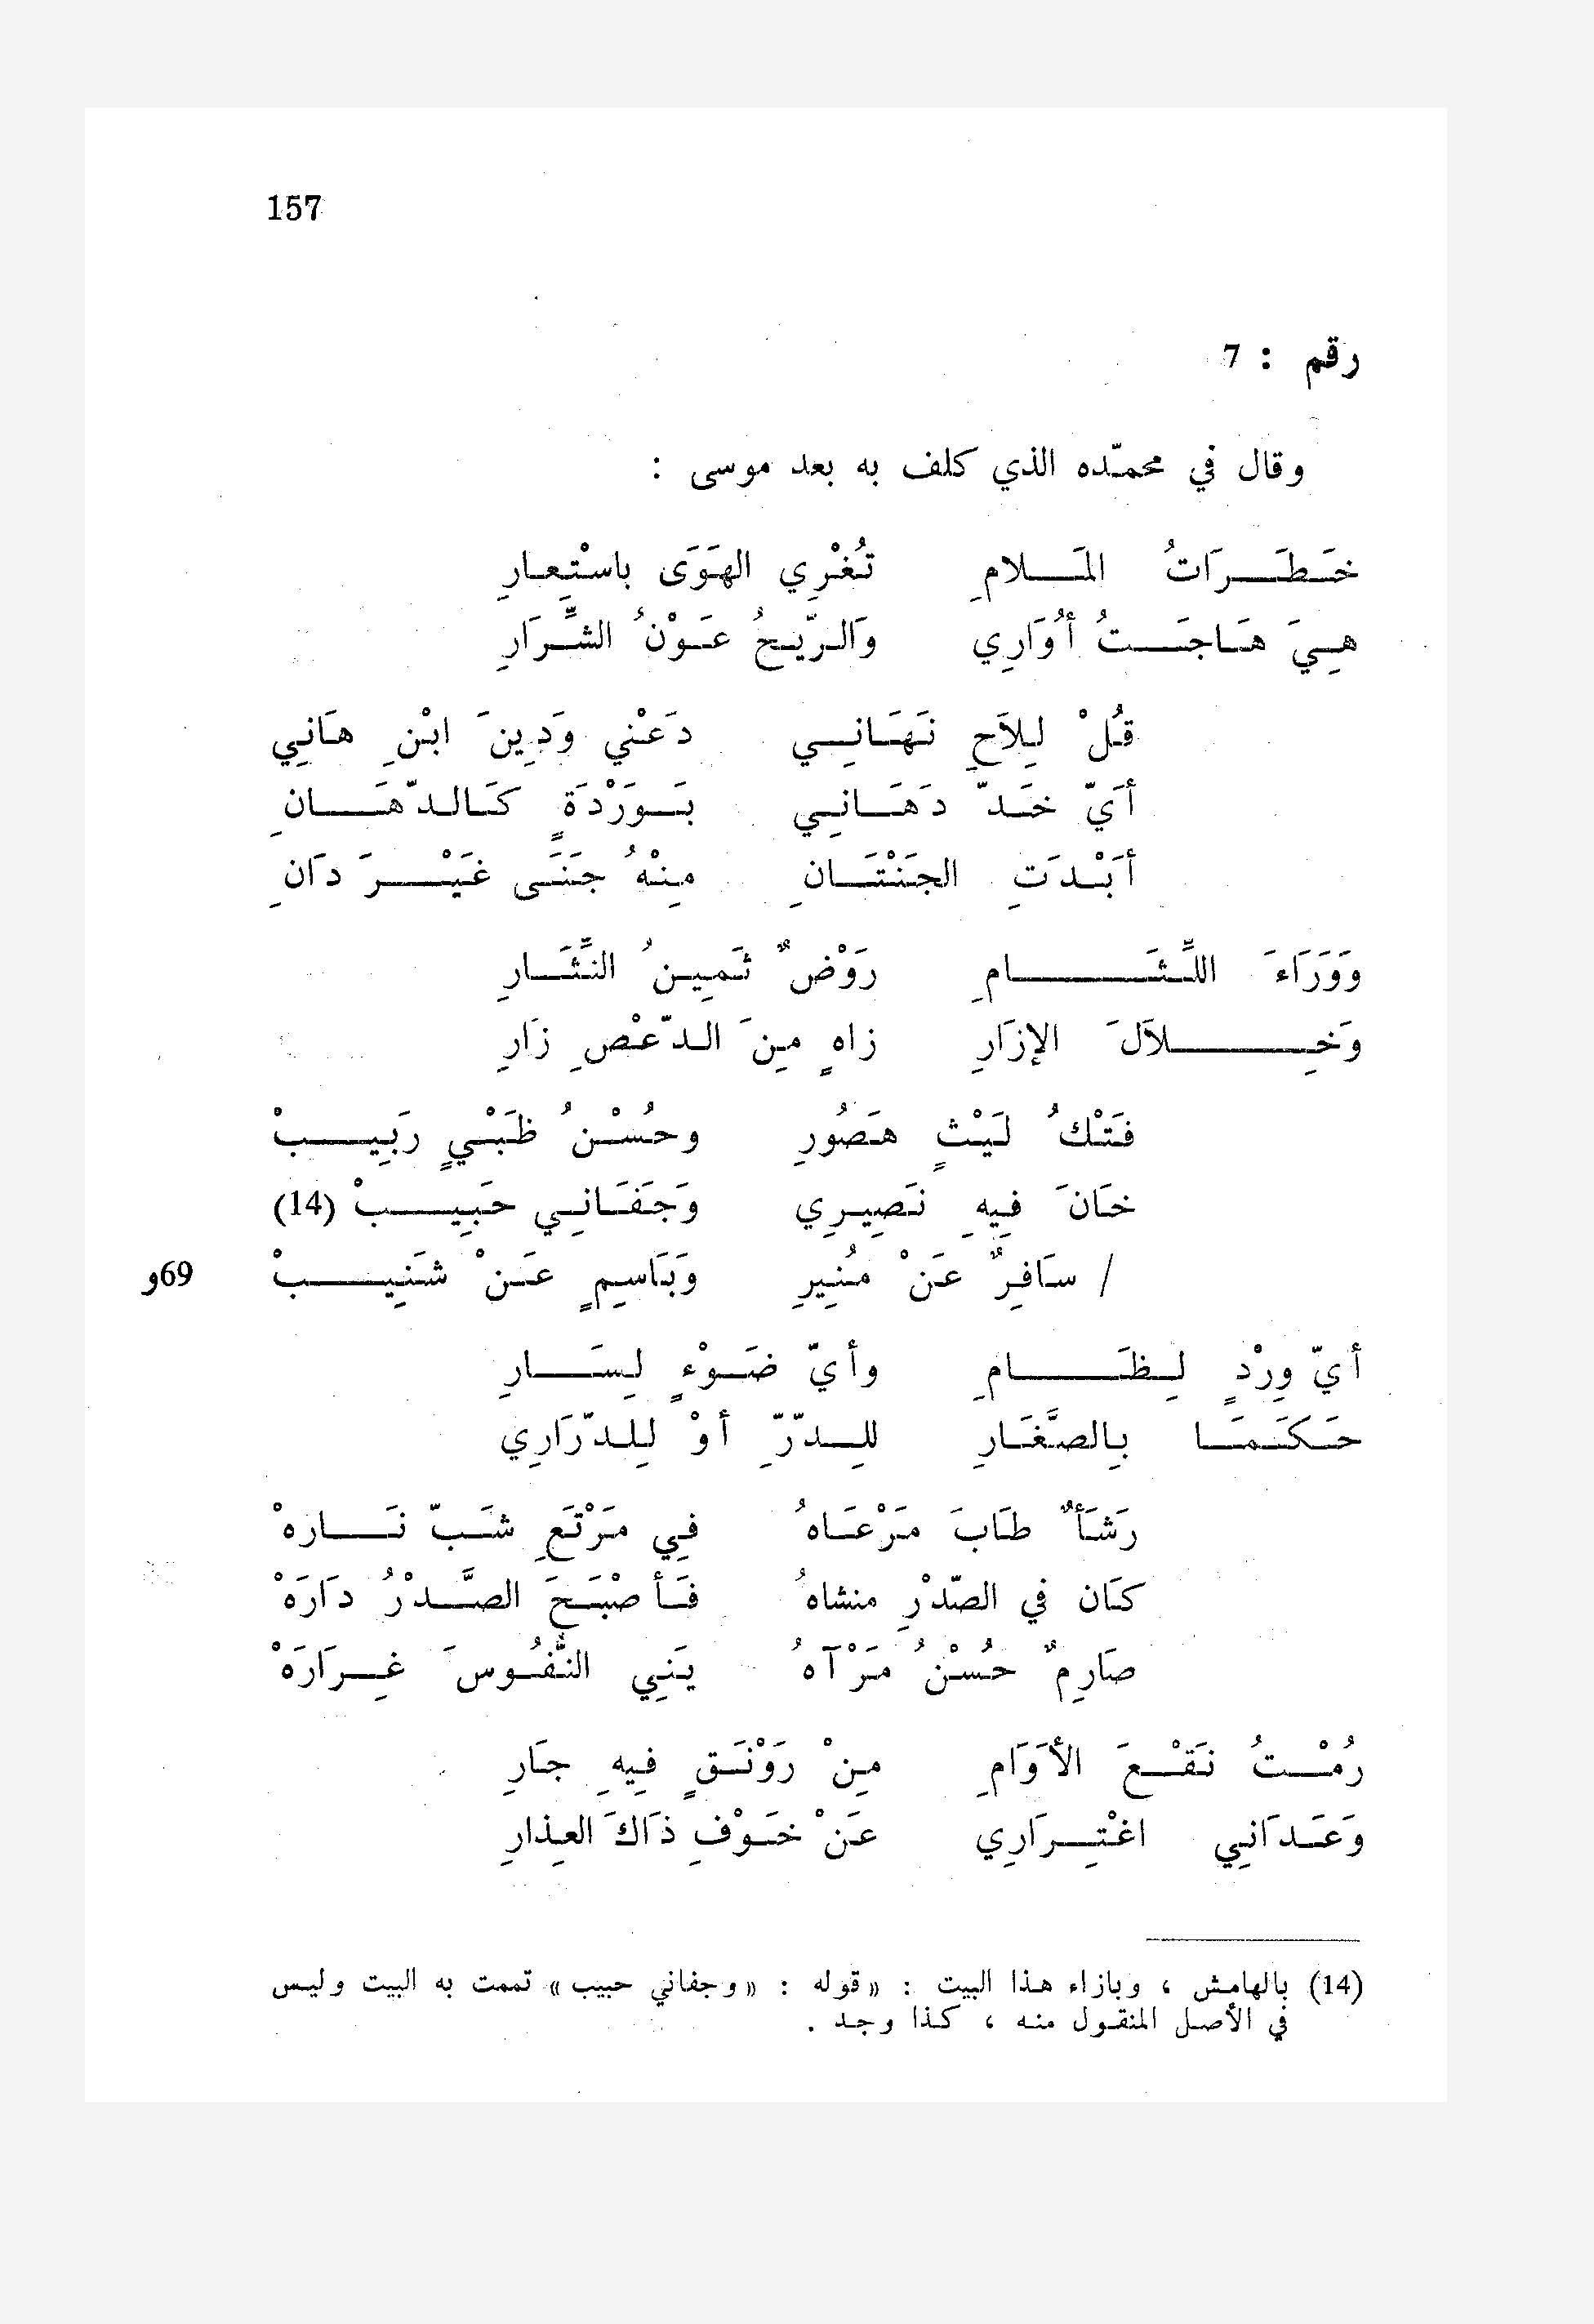 157
رقم : 7
وقال في محمّده الذي كلف به بعد موسى :
خَطَرَاتُ المَلامِ تُغْرِي الهَوَى باسْتِعارِ
هِيَ هَاجَتُ أُوَارِي وَالرّيحُ عَوْنُ الشِّرَارِ
قُلْ لِلاَحِ نَهَانِي دَعْني وَدِينَ ابْنِ هَانِي
أَيّ خَدّ دَهَانِي بَوَرْدَةٍ كَالدّهَانِ
أَبْدَتِ الجَنْتَانِ مِنْهُ جَنَى غَيْرَ دَانِ
وَوَرَاءَ اللِّثَامِ رَوْضٌ ثَمِينُ النِّثَارِ
وَخِلاَلَ الإزَارِ زاهٍ مِنَ الدّعْصِ زَارِ
فَتْكُ لَيْثٍ هَصُورِ وحُسْنُ ظَبْيٍ رَبِيبْ
خَانَ فِيهِ نَصِيرِي وَجَفَانِي حَبِيبْ (14)
/ سَافِرٌ عَنْ مُنِيرِ وَبَاسِمٍ عَنْ شَنِيبْ 69و
أيّ وِرْدٍ لِظَامِ وأيّ ضَوْءٍ لِسَارِ
حَكَمَا بِالصَّغَارِ للِدّرّ أوْ لِلدّرَارِي
رَشَأٌ طَابَ مَرْعَاهُ فِي مَرْتَعِ شَبّ نَارهْ
كَان في الصّدْرِ منشاهُ فَأصْبَحَ الصَّدْرُ دَارَهْ
صَارِمٌ حُسْنُ مَرْآهُ يَنِي النُّفُوسَ غِرَارَهْ
رُمْتُ نَقْعَ الأوَامِ مِنْ رَوْنَقٍ فِيهِ جَارِ
وَعَدَانِي اغْتِرَارِي عَنْ خَوْفِ ذَاكَ العِذارِ
(14) بالهامش ، وبازاء هذا البيت : «قوله : «وجفاني حبيب» تممت به البيت وليس
في الأصل المنقول منه ، كذا وجد .